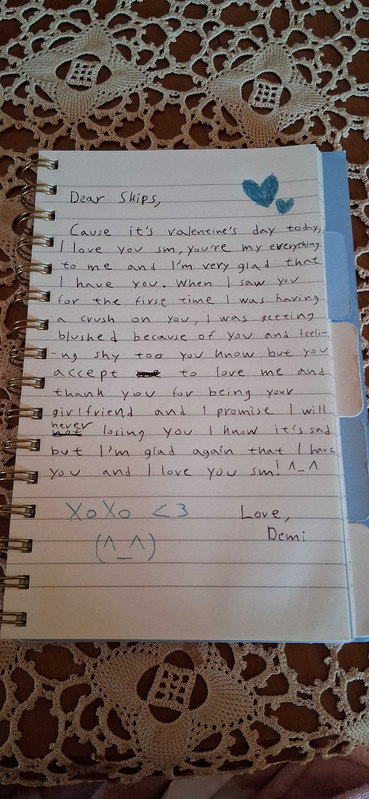 Dear Skips,
Cause it's valentine's day today,
I love you sm, you're my everything
to me and I'm very glad that
I have you. When I saw you
for the first time I was having
a crush on you, I was getting
blushed because of you and feeli-
-ng shy too you know but you
accept to love me and
thank you for being your
girlfriend and I promise I will
never
losing you I know it's sad
but I'm glad again that I have
you and I love you sm! ^_^
XoXo <3
Love,
(^_^)
Demi